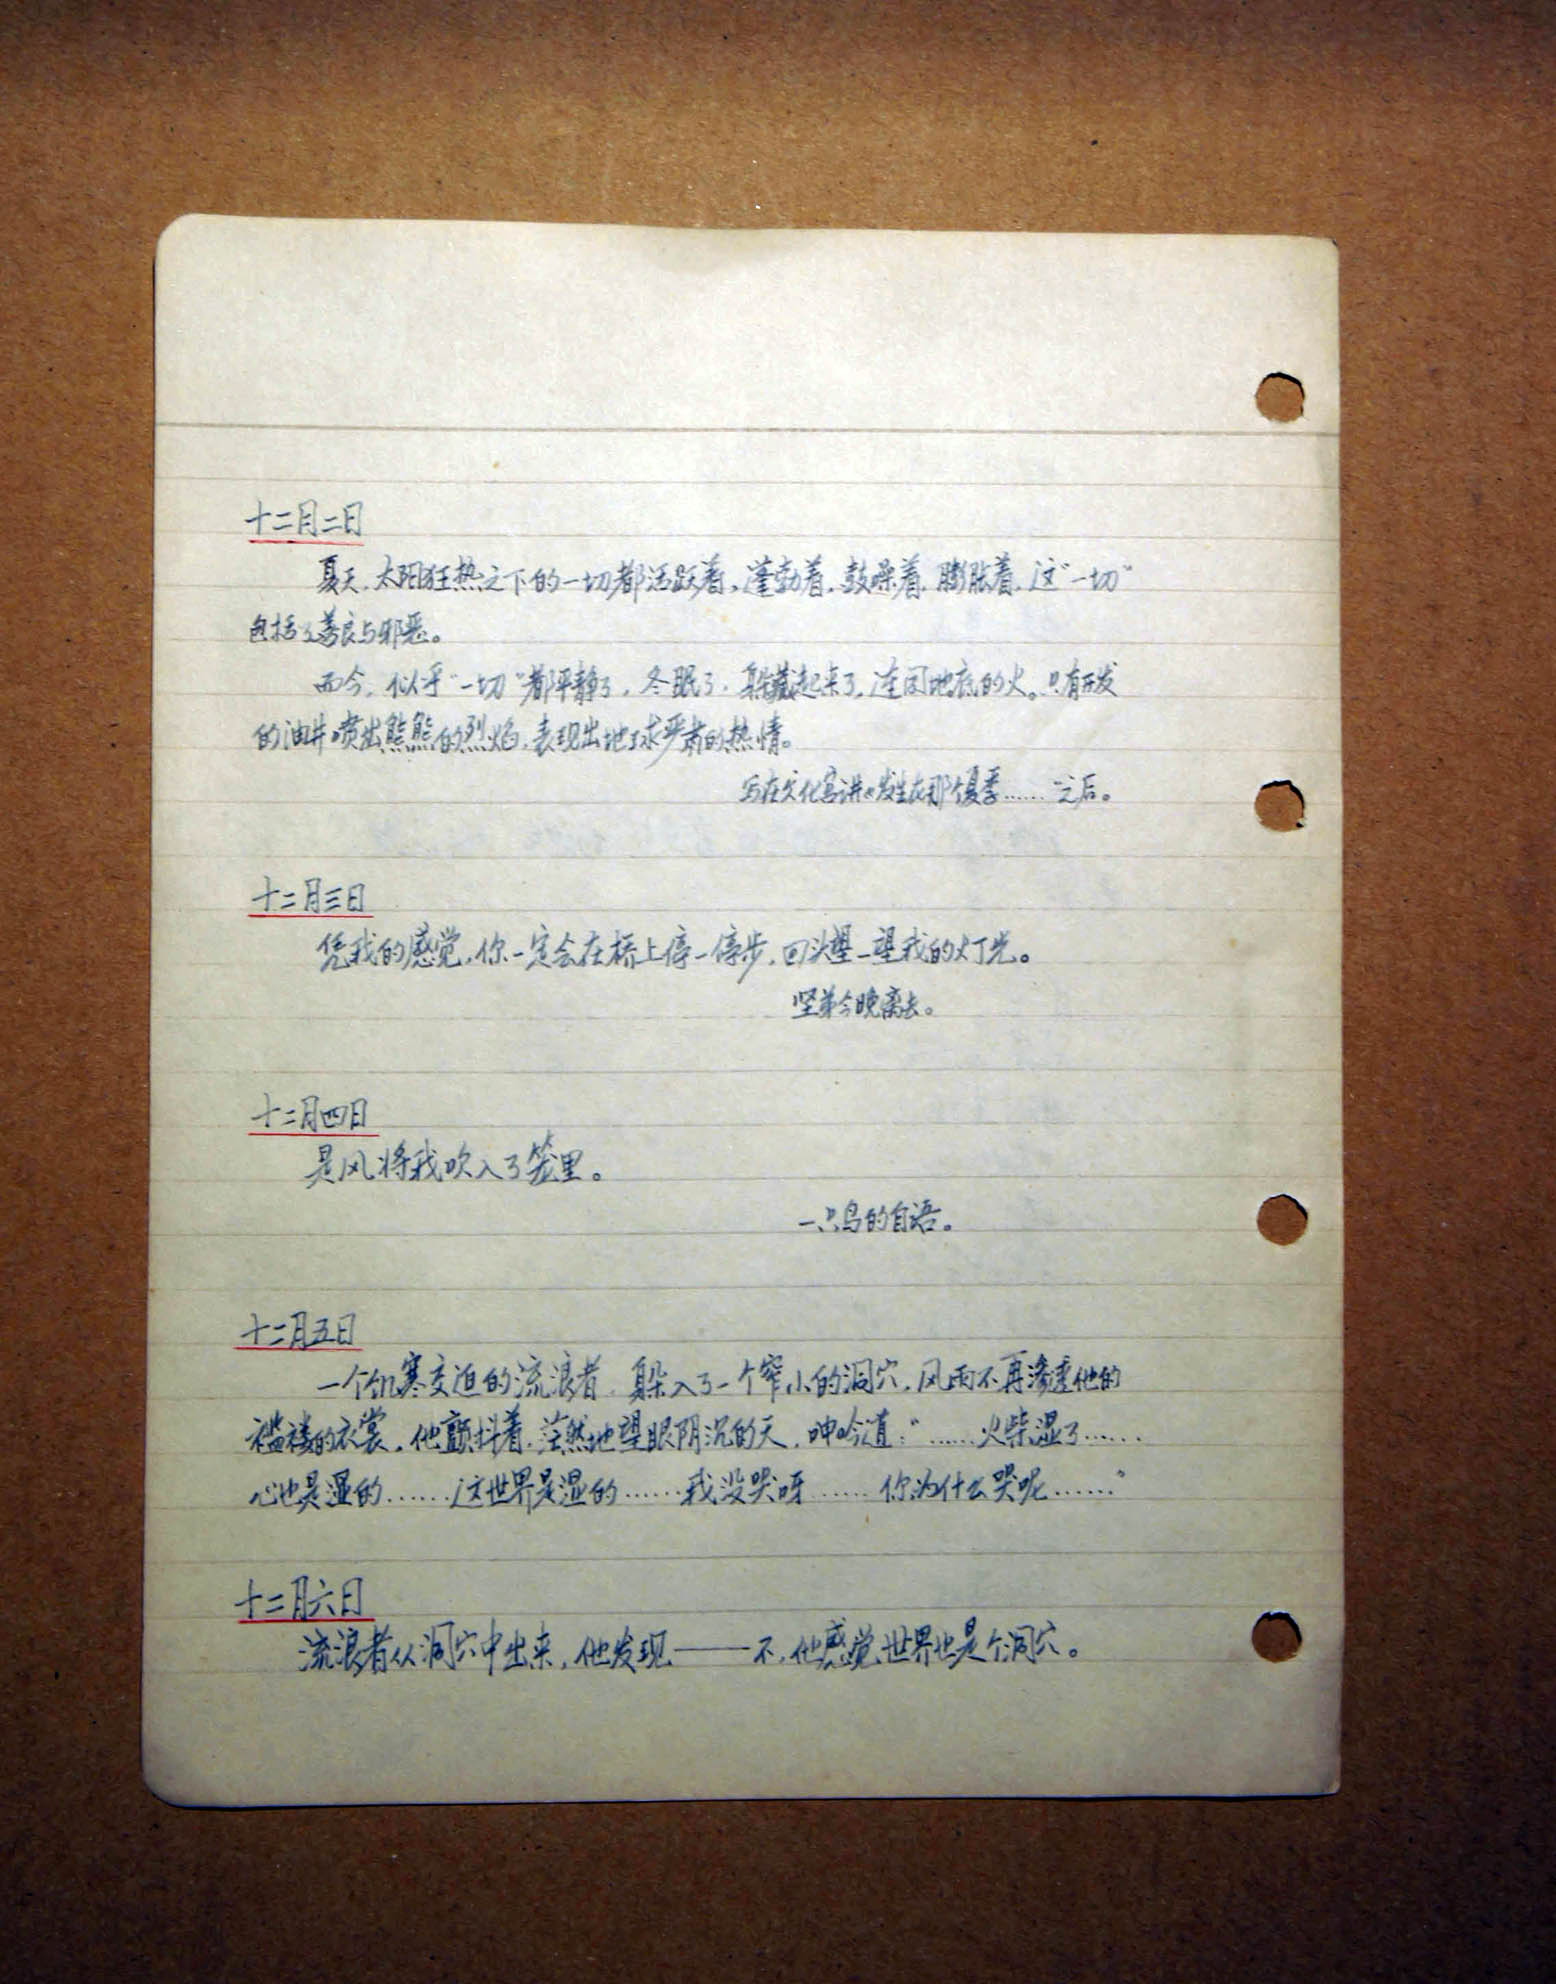 十二月二日
夏天，太阳狂热之下的一切都活跃着，蓬勃着，鼓噪着，膨胀着，这“一切”
包括了善良与邪恶。
而今，似乎“一切”都平静了，冬眠了，躲藏起来了，连同地底的火。只有开发
的油井喷出熊熊的烈焰，表现出地球严肃的热情。
写在文化宫讲“发生在那个夏季……”之后。
十二月三日
凭我的感觉，你一定会在桥上停一停步，回头望一望我的灯光。
坚弟今晚离去。
十二月四日
是风将我吹入了笼里。
一只鸟的自语。
十二月五日
一个饥寒交迫的流浪者，躲入了一个窄小的洞穴，风雨不再渗透他的
褴褛的衣裳，他颤抖着，茫然地望眼阴沉的天，呻吟道：“……火柴湿了……
心也是湿的……这世界是湿的……我没哭呀……你为什么哭呢……”
十二月六日
流浪者从洞穴中出来，他发现——不，他感觉世界也是个洞穴。